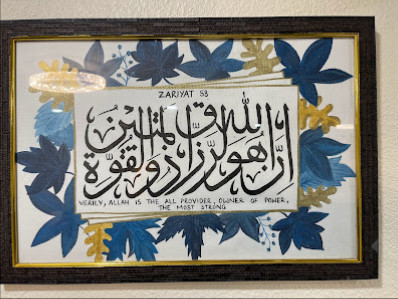 ZARIYAT 58
إِنَّ اللّٰهَ هُوَ الرَّزَّاقُ ذُو الْقُوَّةِ الْمَتِينُ
VERILY, ALLAH IS THE ALL PROVIDER, OWNER OF POWER,
THE MOST STRONG